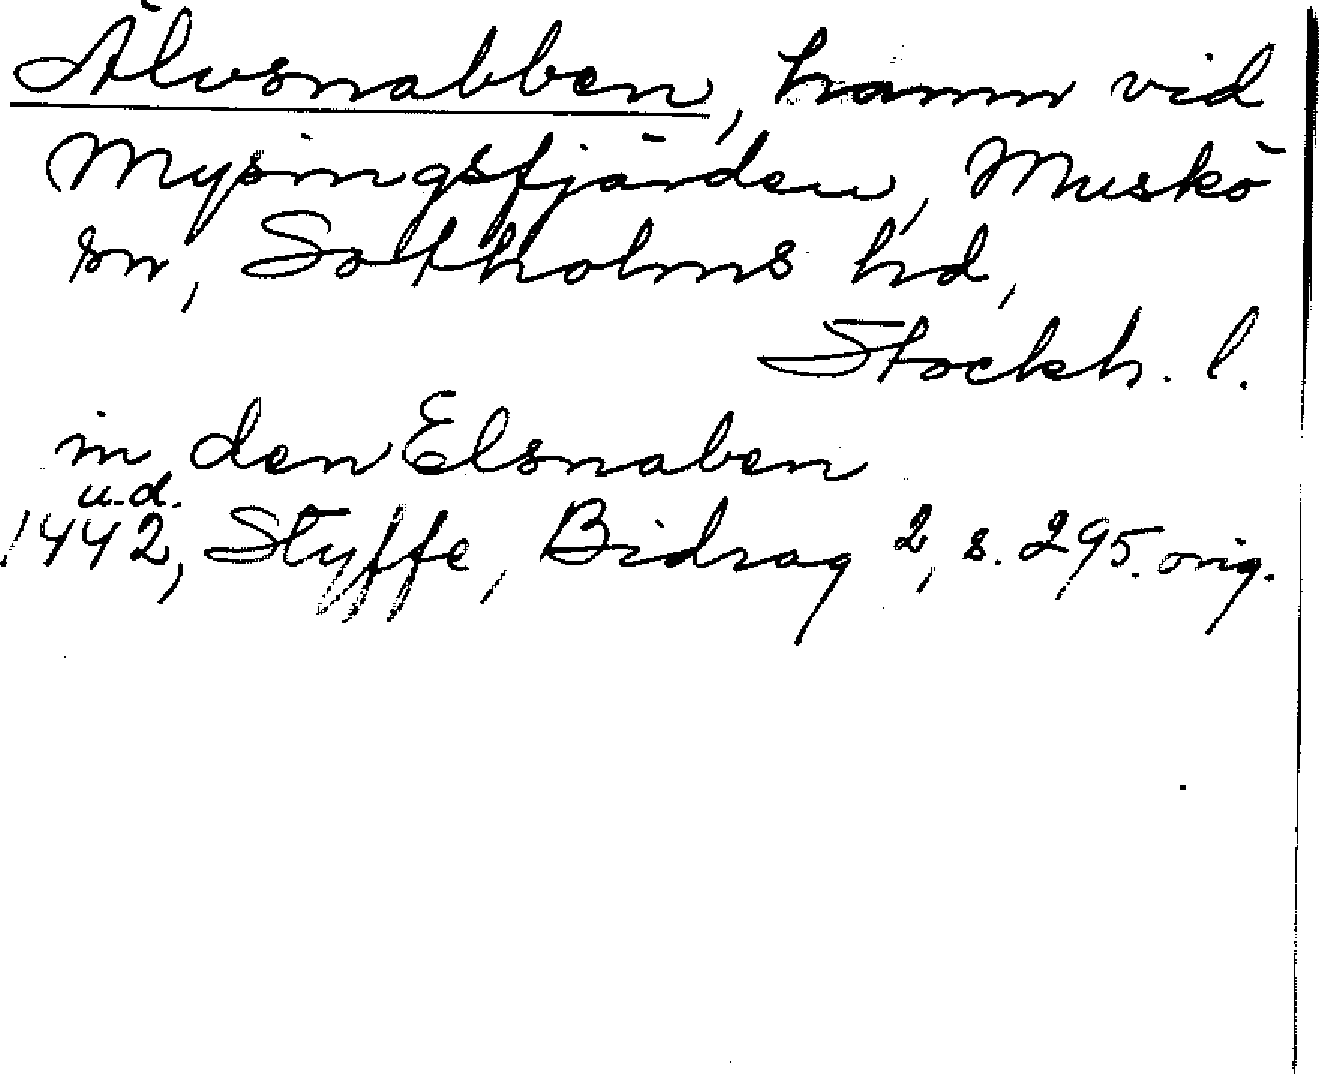 Älvsnabben, hamn vid
Mysingsfjärden, Muskö
sn, Sotholms hd,
Stockh. l.
in den Elsnaben
u.d.
1442, Styffe, Bidrag 2, s. 295. orig.